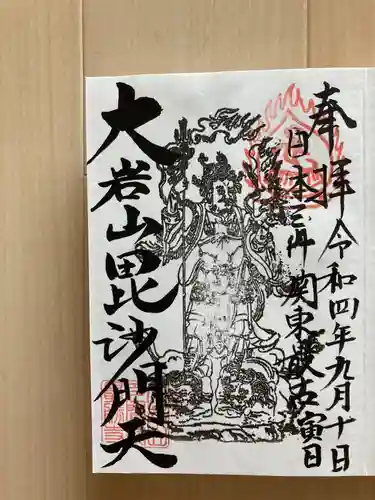 奉拝 令和四年九月十日
日本三体 関東最古 寅日
大岩山毘沙門天